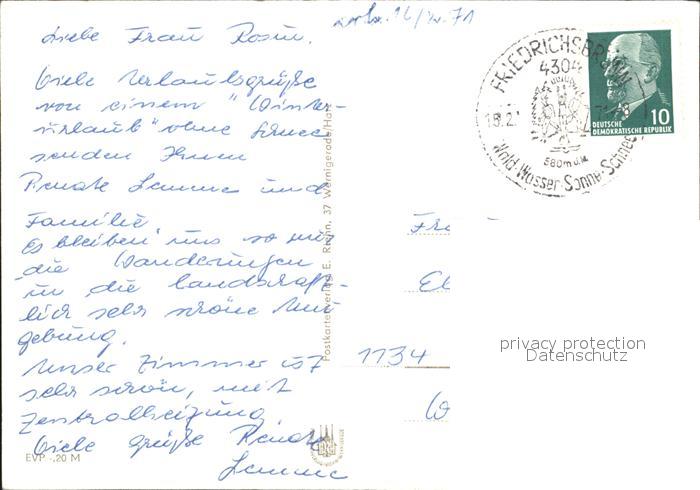 Liebe Frau Rosin.
Viele Urlaubsgrüße
von einem "Winter-
urlaub" ohne Schnee
senden Ihnen
Renate und
Familie
Es bleiben uns so nur
die Wanderungen
in die landschaft-
lich sehr schöne Um-
gebung.
Unser Zimmer ist
sehr schön, mit
Zentralheizung
Viele Grüße Renate
EVP -,20 M
Postkartenverlag E. 37 Wernigerode/Harz
FRIEDRICHSBRUNN
4304
580 m ü.M.
Wald-Wasser-Sonne-Schnee
10
DEUTSCHE
DEMOKRATISCHE REPUBLIK
Fr
El
1134
privacy protection
Datenschutz